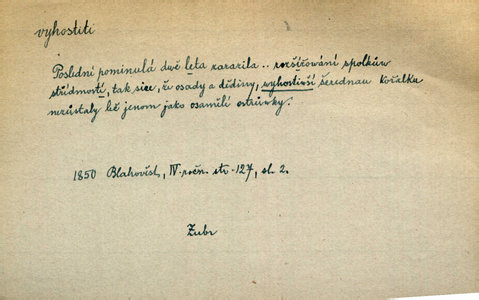 vyhostiti
Poslední pominulá dvě léta zarazila .. rozšiřování spolkův
střídmosti, tak sice, že osady a dědiny, vyhostivší šerednau kořalku
nezůstaly leč jenom jako osamělí ostrůvky.
1850 Blahověst, IV. ročn. str. 127, sl. 2.
Zubr